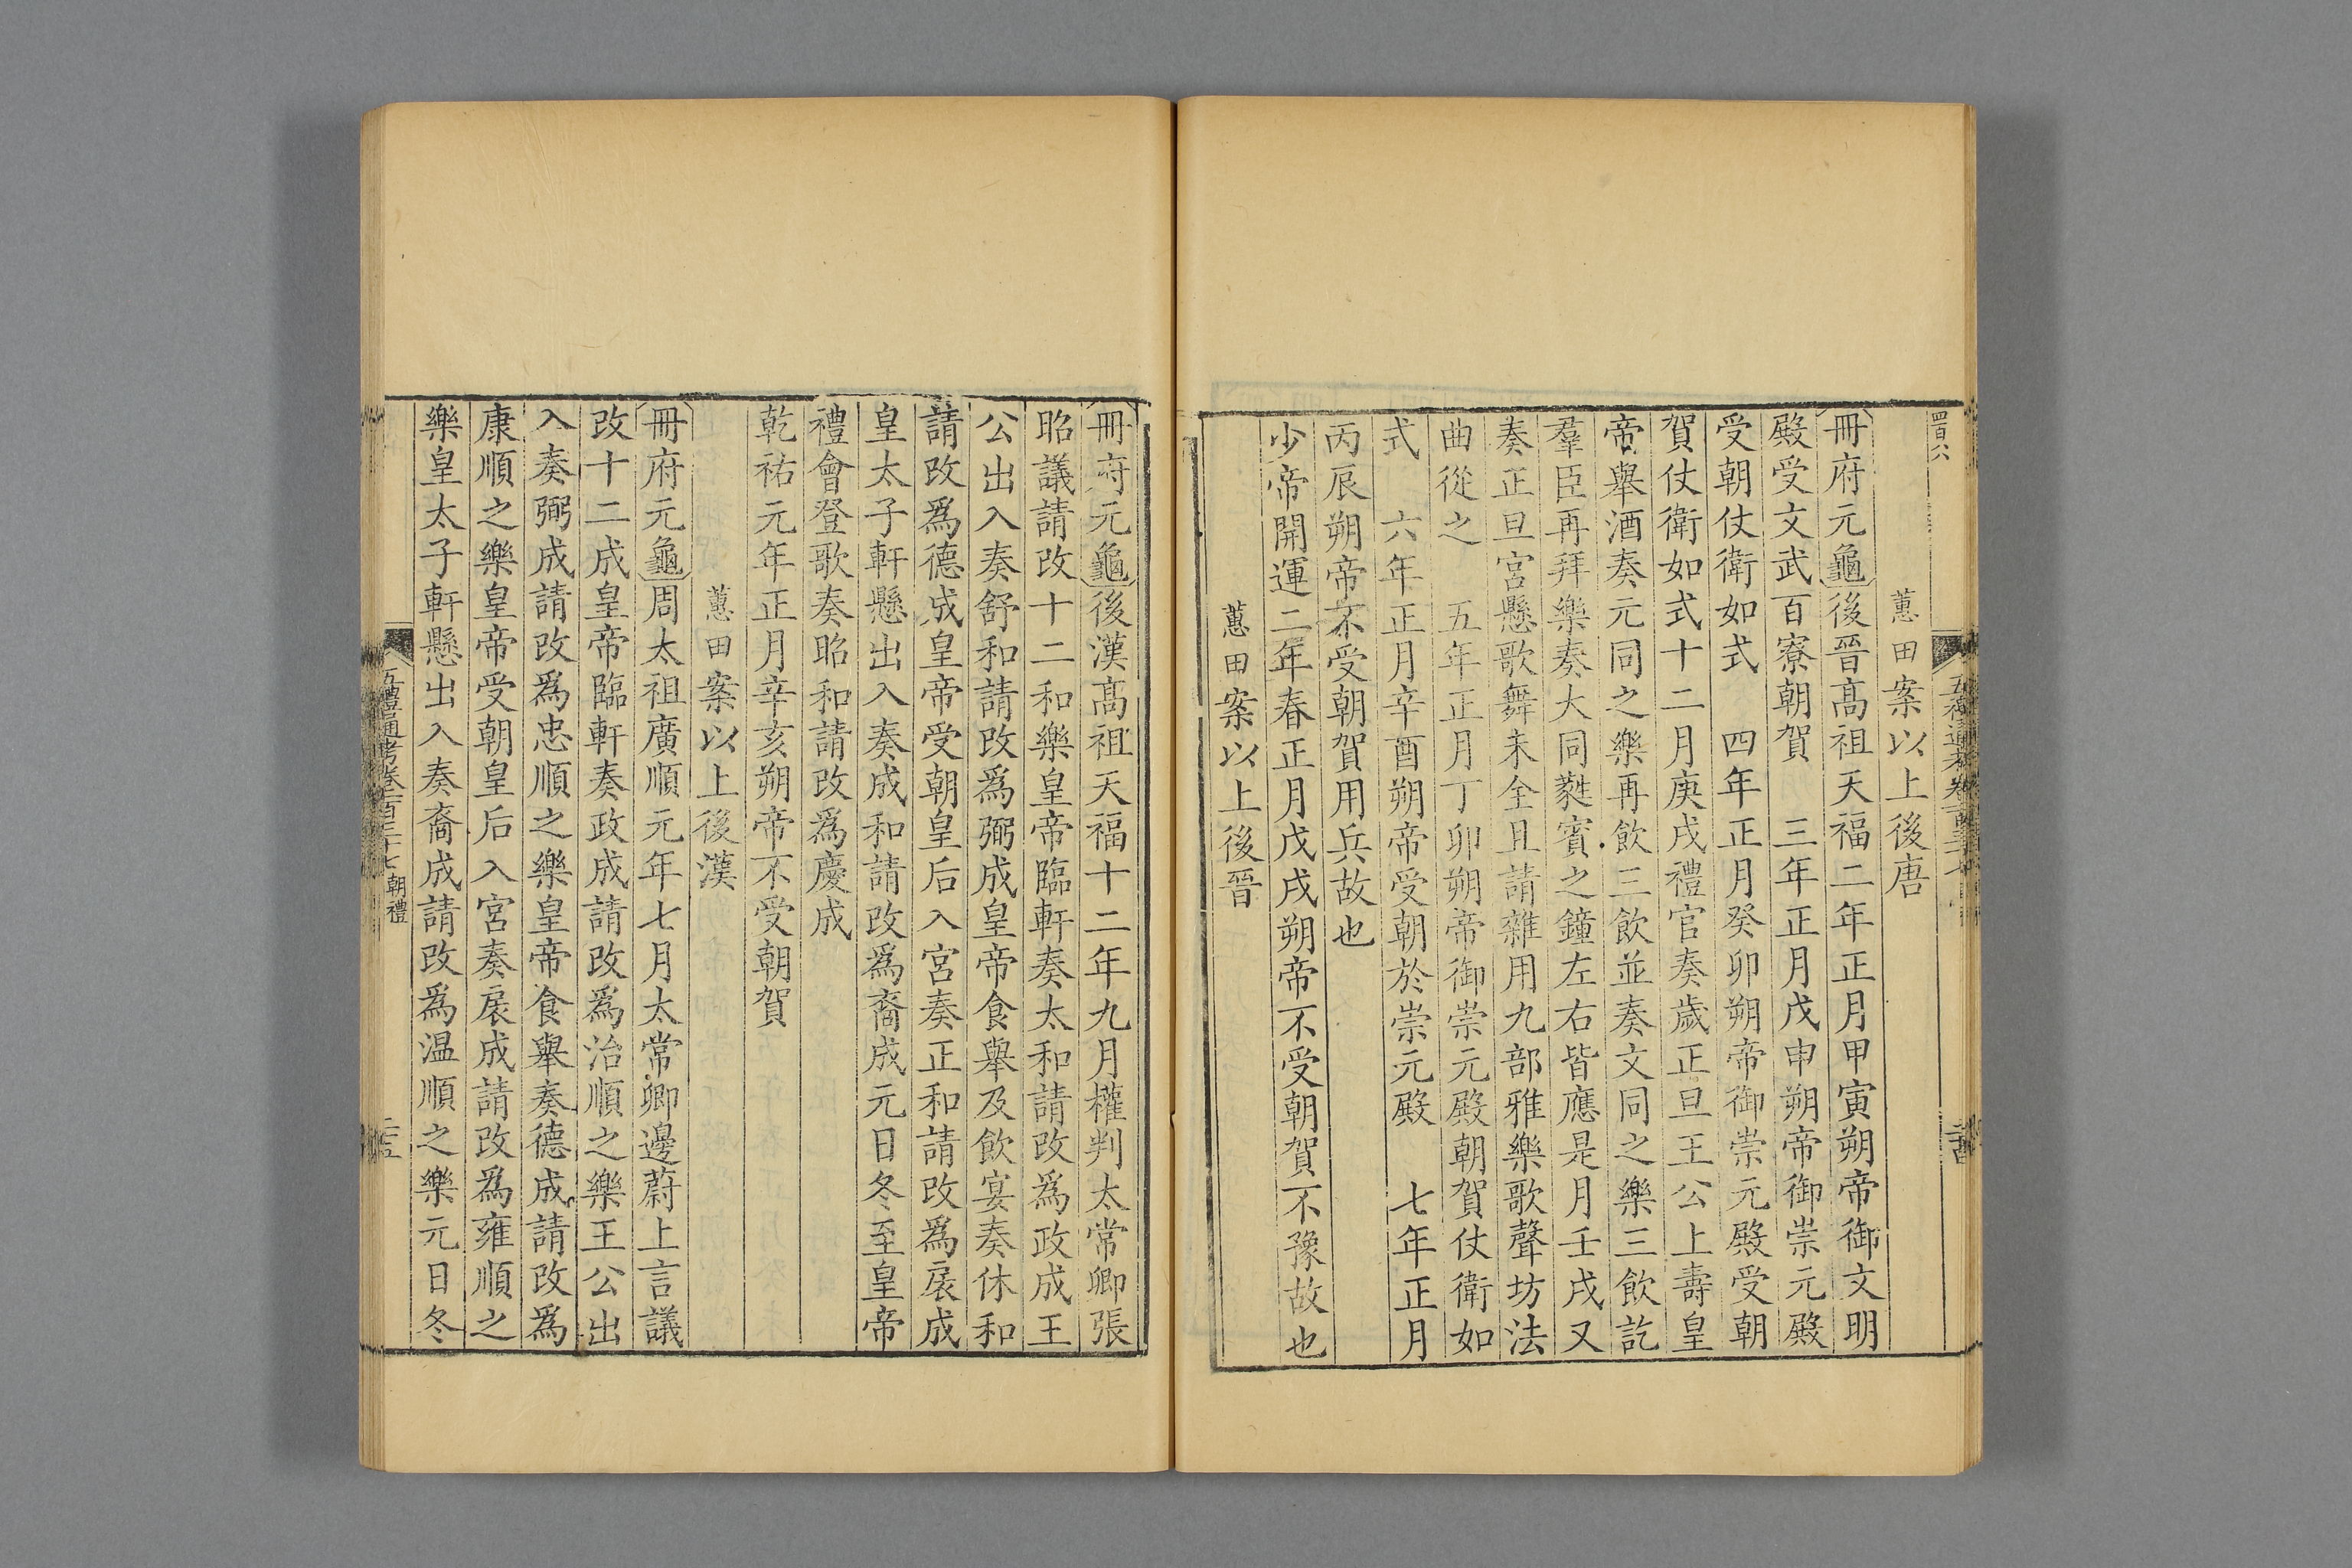 四百六
蕙田案以上後唐
冊府元龜後晉髙祖天福二年正月甲寅朔帝御文明
殿受文武百寮朝賀　三年正月戊申朔帝御崇元殿
受朝仗衛如式　四年正月癸卯朔帝御崇元殿受朝
賀仗衛如式十二月庚戌禮官奏歲正旦王公上壽皇
帝舉酒奏元同之樂再飲三飲並奏文同之樂三飲訖
羣臣再拜樂奏大同蕤賓之鐘左右皆應是月壬戌又
奏正旦宮懸歌舞未全且請雜用九部雅樂歌聲坊法
曲從之　五年正月丁卯朔帝御崇元殿朝賀仗衛如
式　六年正月辛酉朔帝受朝於崇元殿　七年正月
丙辰朔帝不受朝賀用兵故也
少帝開運二年春正月戊戌朔帝不受朝賀不豫故也
蕙田案以上後晉
冊府元龜後漢髙祖天福十二年九月權判太常卿張
昭議請改十二和樂皇帝臨軒奏太和請改爲政成王
公出入奏舒和請改爲弼成皇帝食舉及飲宴奏休和
請改爲德成皇帝受朝皇后入宮奏正和請改爲扆成
皇太子軒懸出入奏成和請改爲裔成元日冬至皇帝
禮會登歌奏昭和請改爲慶成
乾祐元年正月辛亥朔帝不受朝賀
蕙田案以上後漢
冊府元龜周太祖廣順元年七月太常卿邊蔚上言議
改十二成皇帝臨軒奏政成請改爲治順之樂王公出
入奏弼成請改爲忠順之樂皇帝食舉奏德成請改爲
康順之樂皇帝受朝皇后入宮奏扆成請改爲雍順之
樂皇太子軒懸出入奏裔成請改爲温順之樂元日冬
五禮通考卷一百三十七　朝禮